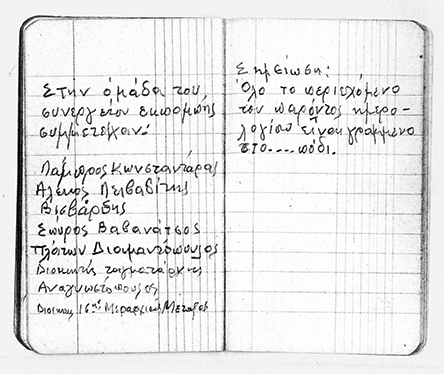 Στην ομάδα του
συνεργείου εκπομπής
συμμετείχαν:
Λάμπρος Κωνσταντάρας
Αλέκος Λειβαδίτης
Βισβάρδης
Σπύρος Βαβανάτσος
Πλάτων Διαμαντόπουλος
Διοικητής ταγματάρχης
Αναγνωστόπουλος
Διοικητής 16ης Μεραρχίας
Σημείωση:
Όλο το περιεχόμενο
του παρόντος ημερο-
λογίου είναι γραμμένο
στο.... πόδι.